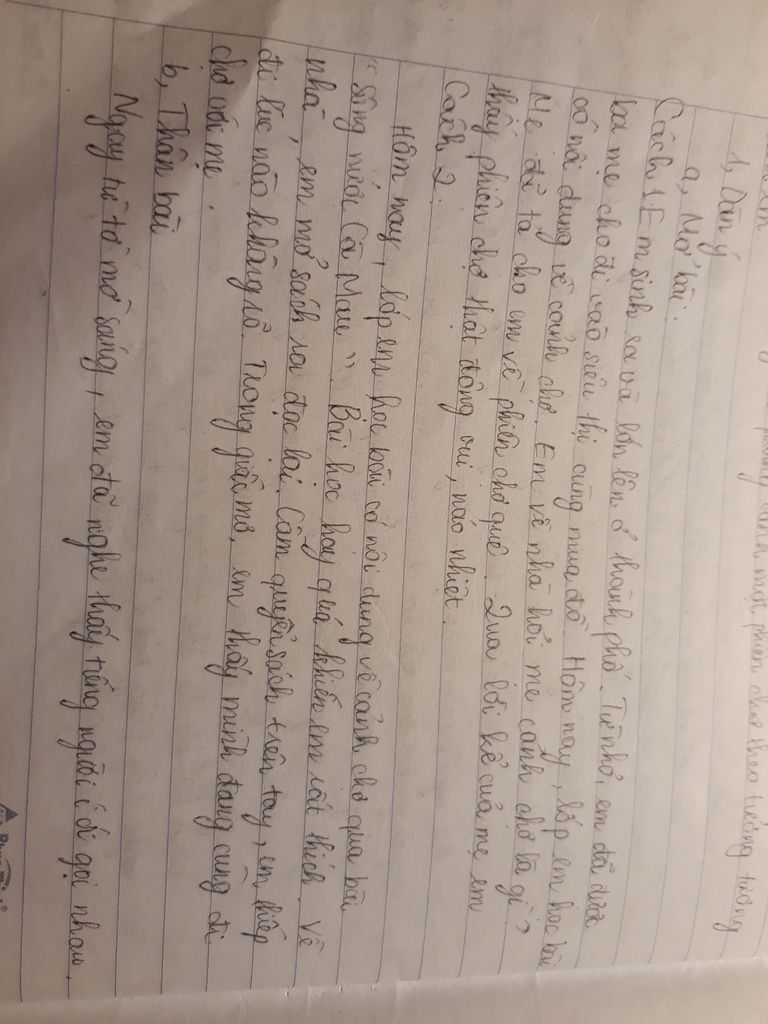 một phiên chợ theo tưởng tượng
1, Dàn ý
a, Mở bài:
Cách 1: Em sinh ra và lớn lên ở thành phố. Từ nhỏ, em đã được
ba mẹ cho đi vào siêu thị cùng mua đồ. Hôm nay, lớp em học bài
có nội dung về cảnh chợ. Em về nhà hỏi mẹ cảnh chợ là gì?
Mẹ đã tả cho em về phiên chợ quê. Qua lời kể của mẹ em
thấy phiên chợ thật đông vui, náo nhiệt.
Cách 2:
Hôm nay, lớp em học bài có nội dung về cảnh chợ qua bài
"Sông nước Cà Mau". Bài học hay quá khiến em rất thích. Về
nhà, em mở sách ra đọc lại. Cầm quyển sách trên tay, em thiếp
đi lúc nào không rõ. Trong giấc mơ, em thấy mình đang cùng đi
chợ với mẹ.
b, Thân bài
Ngay từ tờ mờ sáng, em đã nghe thấy tiếng người í ới gọi nhau.